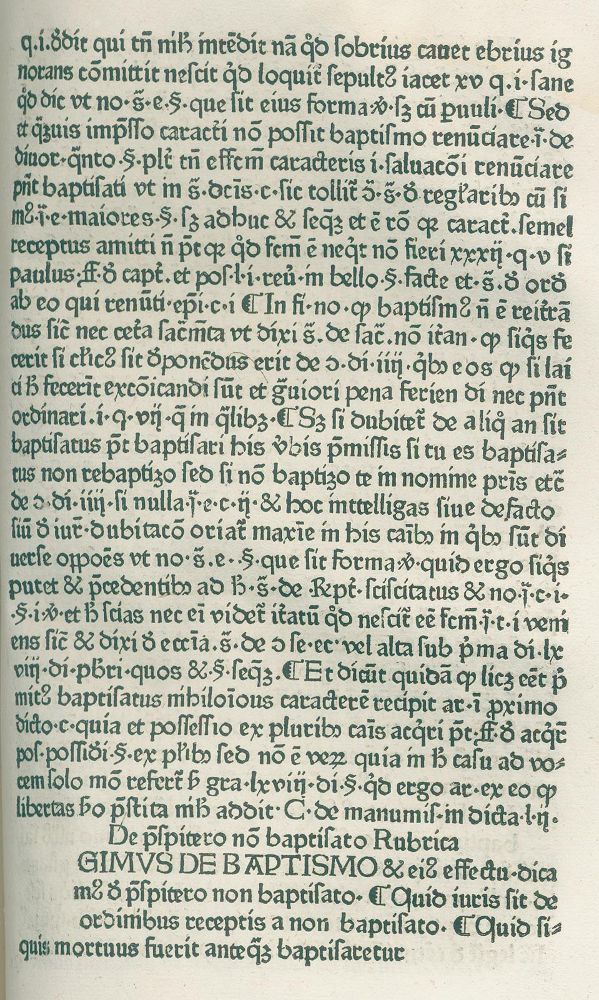 q.i.ꝺdit qui tñ nihͥ intēdit nā qͦd sobrius cauet ebrius ig
norans cōmittit nescit qͦd loquit̃ sepultꝰ iacet xv q.i.sane
qͦd dic vt no.s̃.e.§.que sit eius forma.ꝟ.sꝫ cū puuli.¶Sed
et qꝫuis imp̃sso caract̃i nō possit baptismo renūciare.ī.de
diuor.qͣnto.§.plꝫ tñ effcm̄ caracteris i.saluacōi renūciare
pñt baptisati vt in s̃.dcīs.c.sic tollit̃ ↄ̃.s̃.ꝺ regl̃aribꝰ cū si
mꝰ.ī.e.maiores.§.sꝫ adhuc & seqꝫ et ē rō ꝙ caract̃.semel
receptus amitti ñ p̃t ꝙ qͦd fcm̄ ē neqͥt nō fieri xxxij.q.v si
paulus.ff.ꝺ capt̃.et pos.l.i.reũ.in bello.§.facte et.s̃.ꝺ ord
ab eo qui renūti.ep̃i.c.i ¶In fi.no.ꝙ baptismꝰ ñ ē reit̃rā
dus sic̃ nec cet̃a sac̃m̃ta vt dixi s̃.de sac̃.nō it̃an.ꝙ siqͥs fe
cerit si cl̃icꝰ sit ꝺponēdus erit de ↄ.di.iiij.qͥbꝰ eos ꝙ si lai
ci h̃ fecerīt excōicandi sūt et g̃uiori pena ferien di nec pñt
ordinari.i.q.vij.qͣ in qͥlibꝫ.¶Sꝫ si dubitet̃ de aliqͦ an sit
baptisatus p̃t baptisari his v̓bis p̃missis si tu es baptisa-
tus non rebaptizo sed si nō baptizo te in nomine pr̃is etc̃
de ↄ.di.iiij.si nulla.ī.e.c.ij.& hoc inttelligas siue defacto
siũ ꝺ iur̃.dubitacō oriat̃ maxīe in his caībꝰ in qͥbꝰ sūt di
uerse opp̃oēs vt no.s̃.e.§.que sit forma.ꝟ.quid ergo siqͥs
putet & p̃cedentibꝰ ad h̃.s̃.de.Rpt̃.sciscitatus & no.ī.c.i.
.§.i.ꝟ.et h̃ scias nec eī videt̃ it̃atū qͦd nescit̃ eē fcm̄.ī.t.i veni
ens sic̃ & dixi ꝺ ecc̃ia.s̃.de ↄ se.ec̃ vel alta sub p̃ma di.lx
viij.di.pb̃ri.quos &.§.seqꝫ.¶Et dicūt quidā ꝙ licꝫ eēt p̃
mitꝰ baptisatus nihiloīous caracterē recipit ar.ī pximo
dicto.c.quia et possessio ex pluribꝰ caīs acqͥri p̃t.ff.ꝺ acqͥr̃
pos.possidi.§.ex pl̃ibꝰ sed nō ē veꝝ quia in h̃ casu ad vo-
cem solo mō refert̃ h̃ gra.lxviij.di.§.qͦd ergo ar.ex eo ꝙ
libertas ho p̃stita nihͥ addit.C.de manumis.in dicta.l.ij.
De p̃spitero nō baptisato Rubrica
GIMVS DE BAPTISMO & eiꝰ effectu.dica
mꝰ ꝺ p̃spitero non baptisato.¶Quid iuris sit de
ordinibus receptis a non baptisato.¶Quid si-
quis mortuus fuerit anteqꝫ baptisaretur